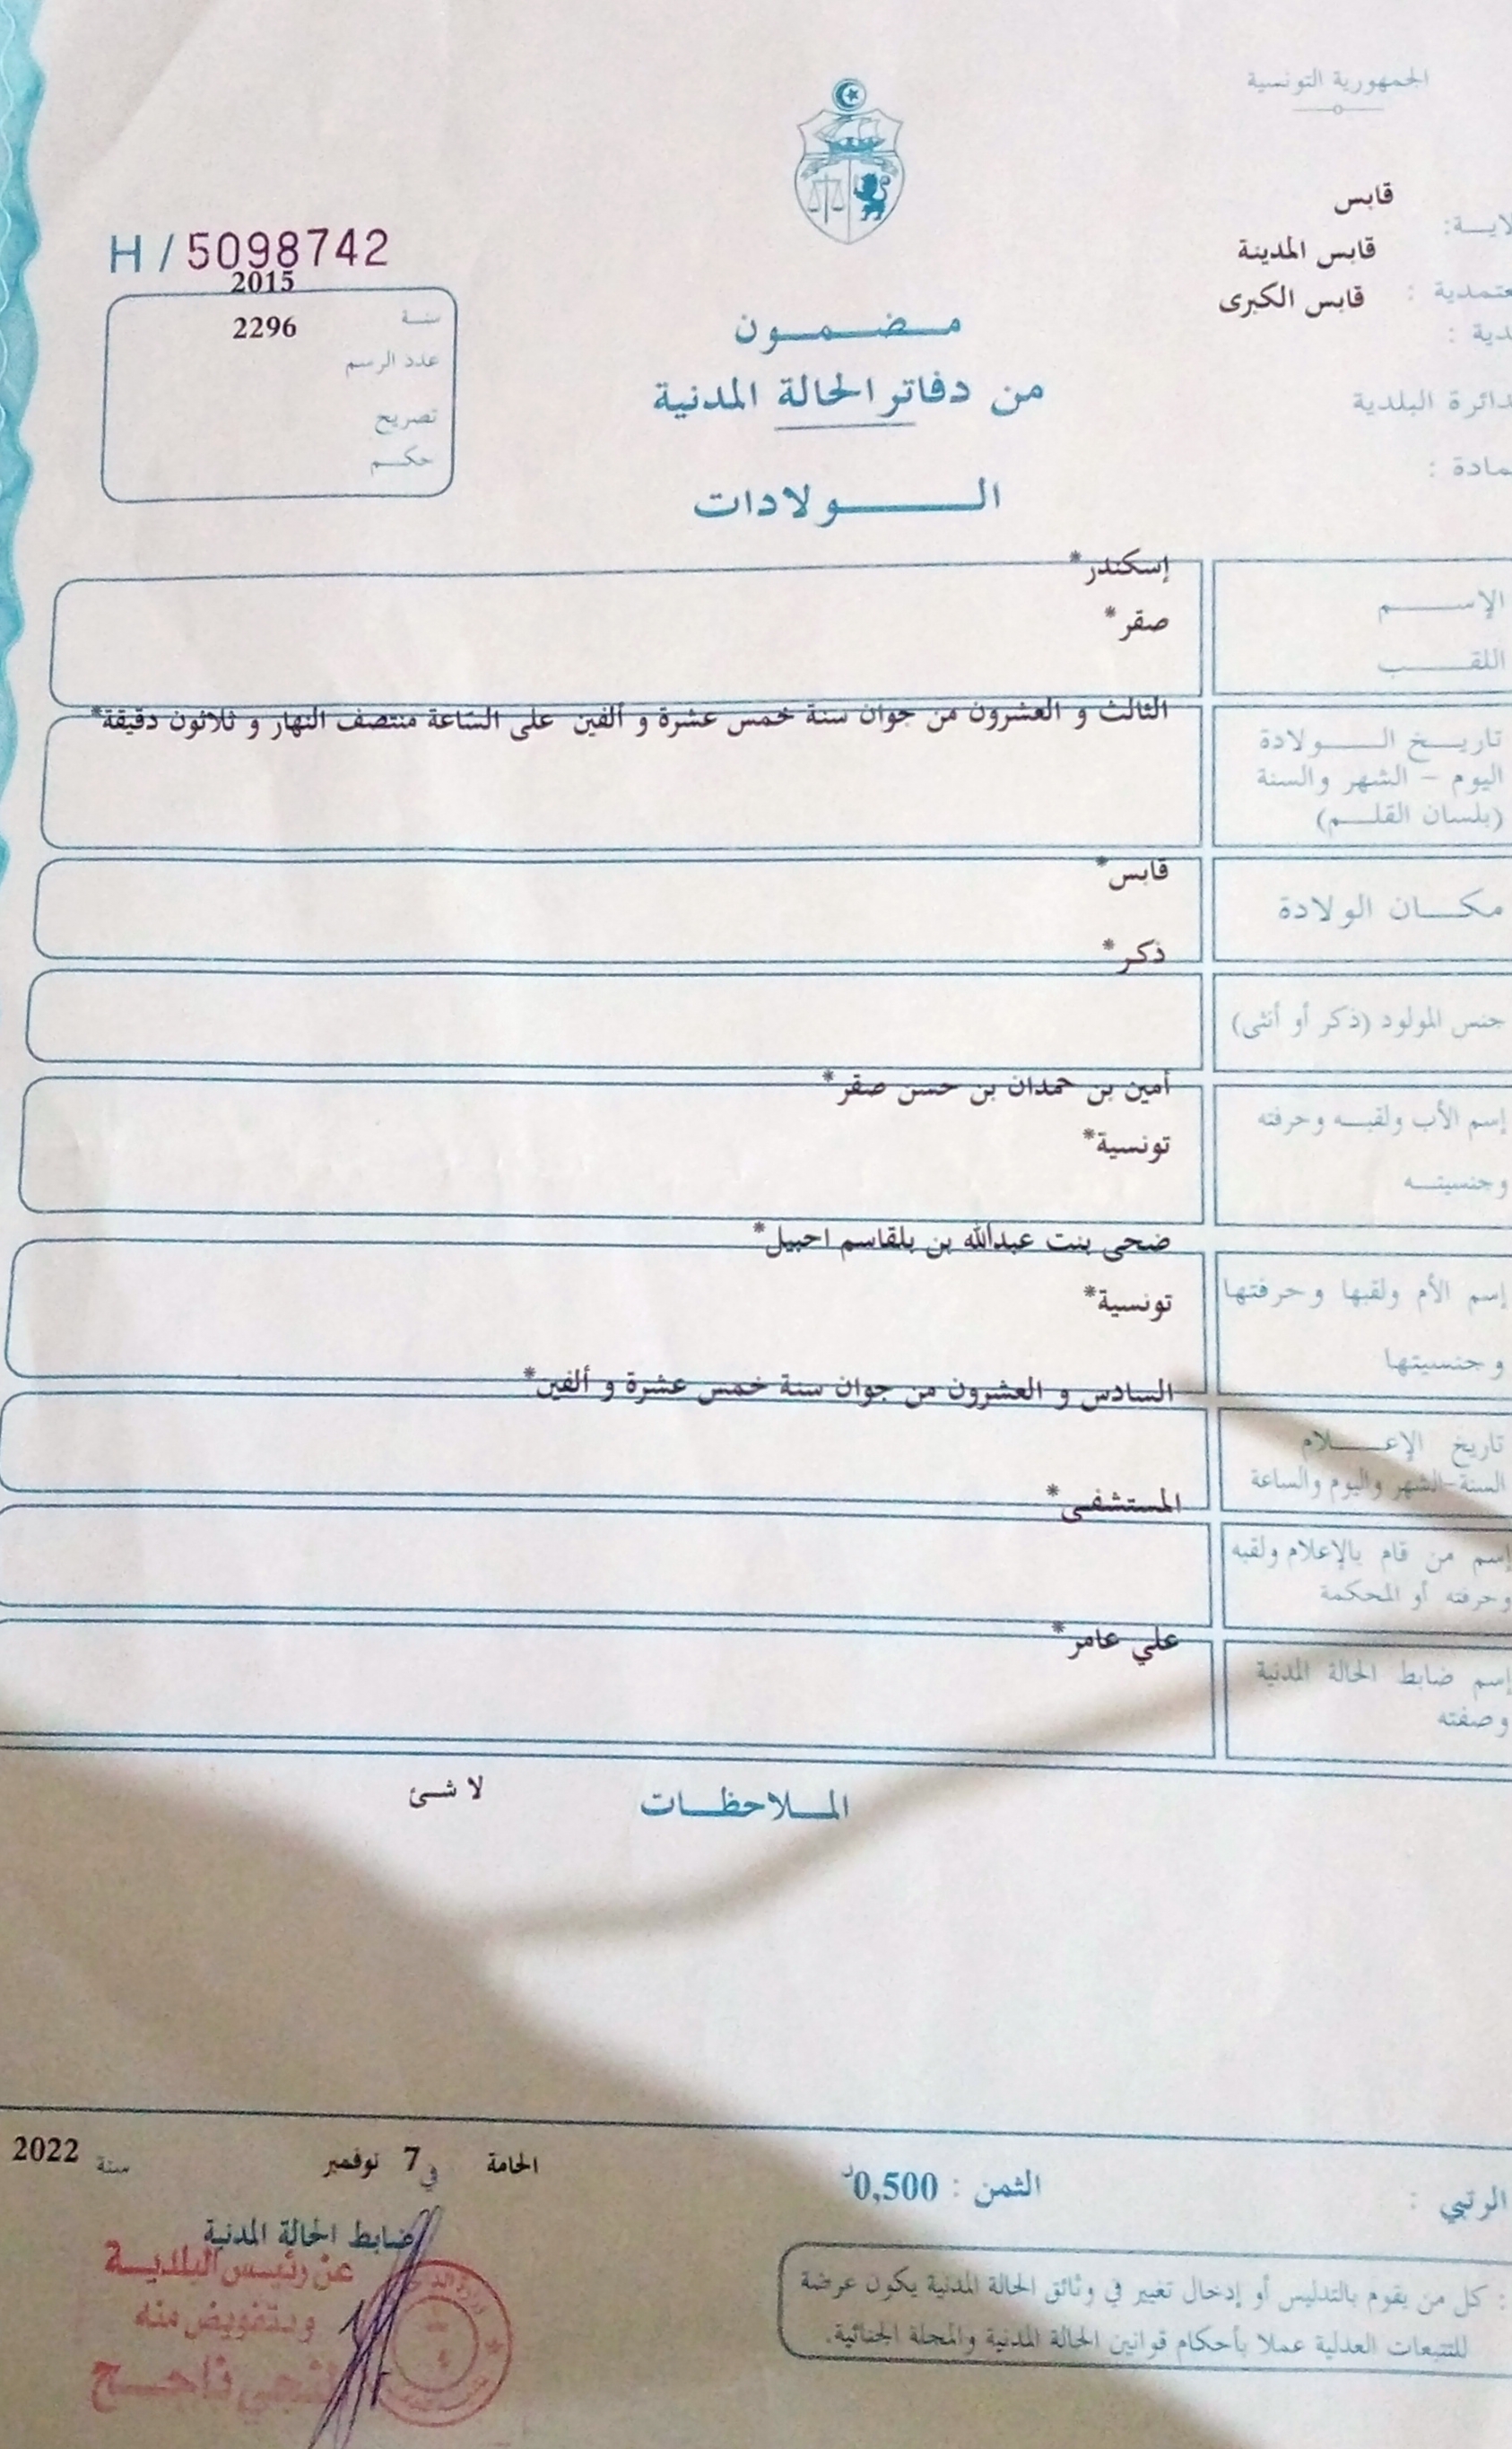 الجمهورية التونسية
قابس
قابس المدينة
قابس الكبرى
H / 5098742
2015
سنة
2296
عدد الرسم
تصريح
حكم
مضمون
من دفاتر الحالة المدنية
الولادات
إسكندر*
الإسم
صقر*
اللقب
الثالث و العشرون من جوان سنة خمس عشرة و ألفين على الساعة منتصف النهار و ثلاثون دقيقة*
تاريخ الولادة
اليوم - الشهر والسنة
(بلسان القلم)
قابس*
مكان الولادة
ذكر*
جنس المولود (ذكر أو أنثى)
أمين بن حمدان بن حسن صقر*
إسم الأب ولقبه وحرفته
تونسية*
وجنسيته
ضحى بنت عبدالله بن بلقاسم احبيل*
إسم الأم ولقبها وحرفتها
تونسية*
وجنسيتها
السادس و العشرون من جوان سنة خمس عشرة و ألفين*
تاريخ الإعلام
السنة-الشهر واليوم والساعة
المستشفى*
إسم من قام بالإعلام ولقبه
وحرفته أو المحكمة
علي عامر*
إسم ضابط الحالة المدنية
وصفته
الملاحظات لا شئ
الحامة في 7 نوفمبر سنة 2022
الرتبي :
الثمن : 0,500د
ضابط الحالة المدنية
عن رئيس البلدية
وبتفويض منه
ناجح
: كل من يقوم بالتدليس أو إدخال تغيير في وثائق الحالة المدنية يكون عرضة
للتتبعات العدلية عملا بأحكام قوانين الحالة المدنية والمجلة الجنائية.